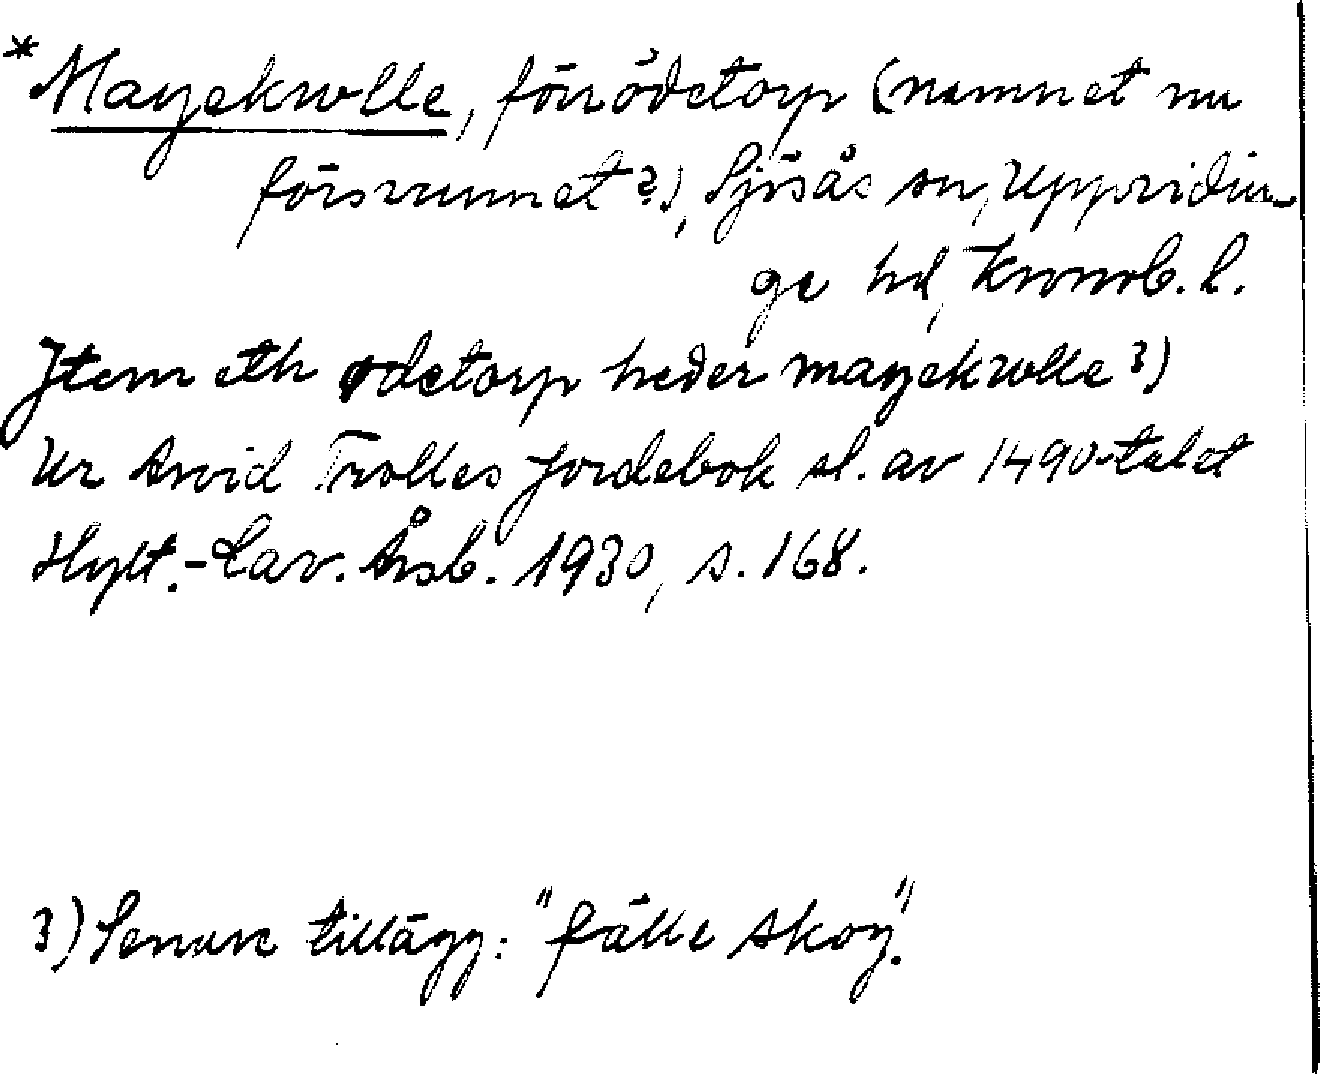 * Magekrolle, förr ödetorp (namnet nu
försvunnet?), Sjösås sn, Uppvidin-
ge hd, Kronob. l.
Jtem eth ødetorp heder magekrolle 3)
Ur Arvid Trolles Jordebok sl. av 1490-talet
Hylt.-Cav. Årsb. 1930, s. 168.
3) Senare tillägg: "fälle skog".